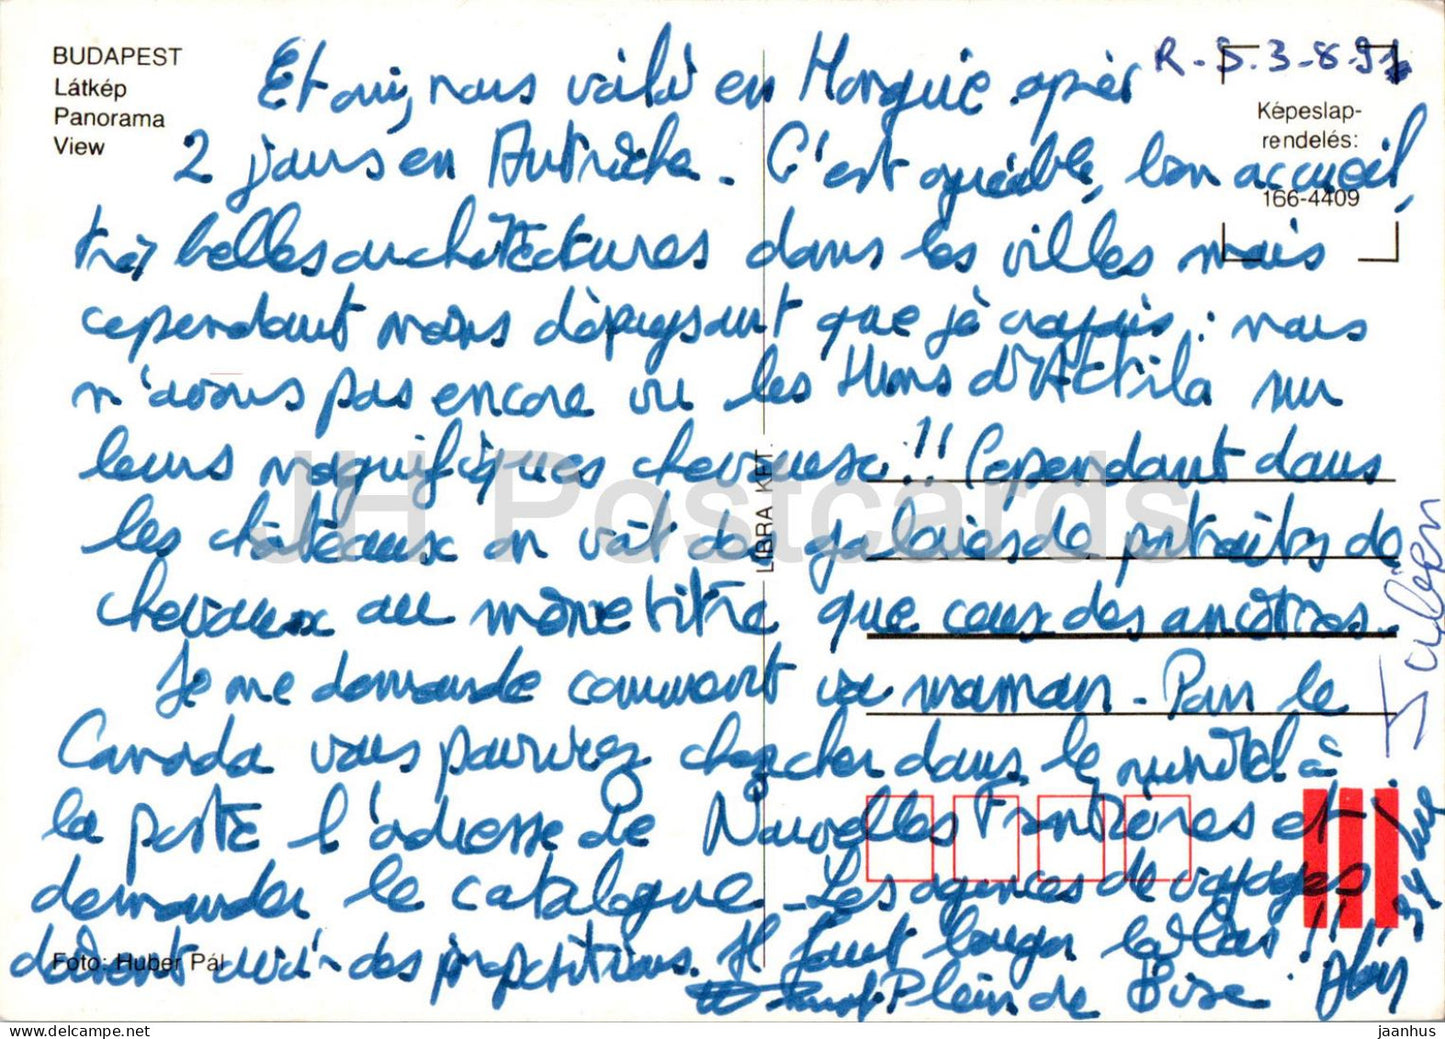 BUDAPEST
Látkép
Panorama
View
R - S. 3-8-91
Képeslap-
rendelés:
166-4409
Et oui, nous voilà en Hongrie après
2 jours en Autriche. C'est agréable, bon accueil,
très belles architectures dans les villes mais
cependant moins dépaysant que je croyais : nous
n'avons pas encore vu les Huns d'Attila sur
leurs magnifiques chevaux !! Cependant dans
les châteaux on voit des galeries de portraits de
chevaux au même titre que ceux des ancêtres.
Je me demande comment va maman. Pour le
Canada vous pourriez chercher dans le minitel à
la poste l'adresse de Nouvelles Frontières et
demander le catalogue. Les agences de voyages
doivent avoir des propositions. Il faut bouger là-bas !!
Plein de bise
Julien
LIBRA KFT.
Foto: Huber Pál
JH Postcards
jaanhus